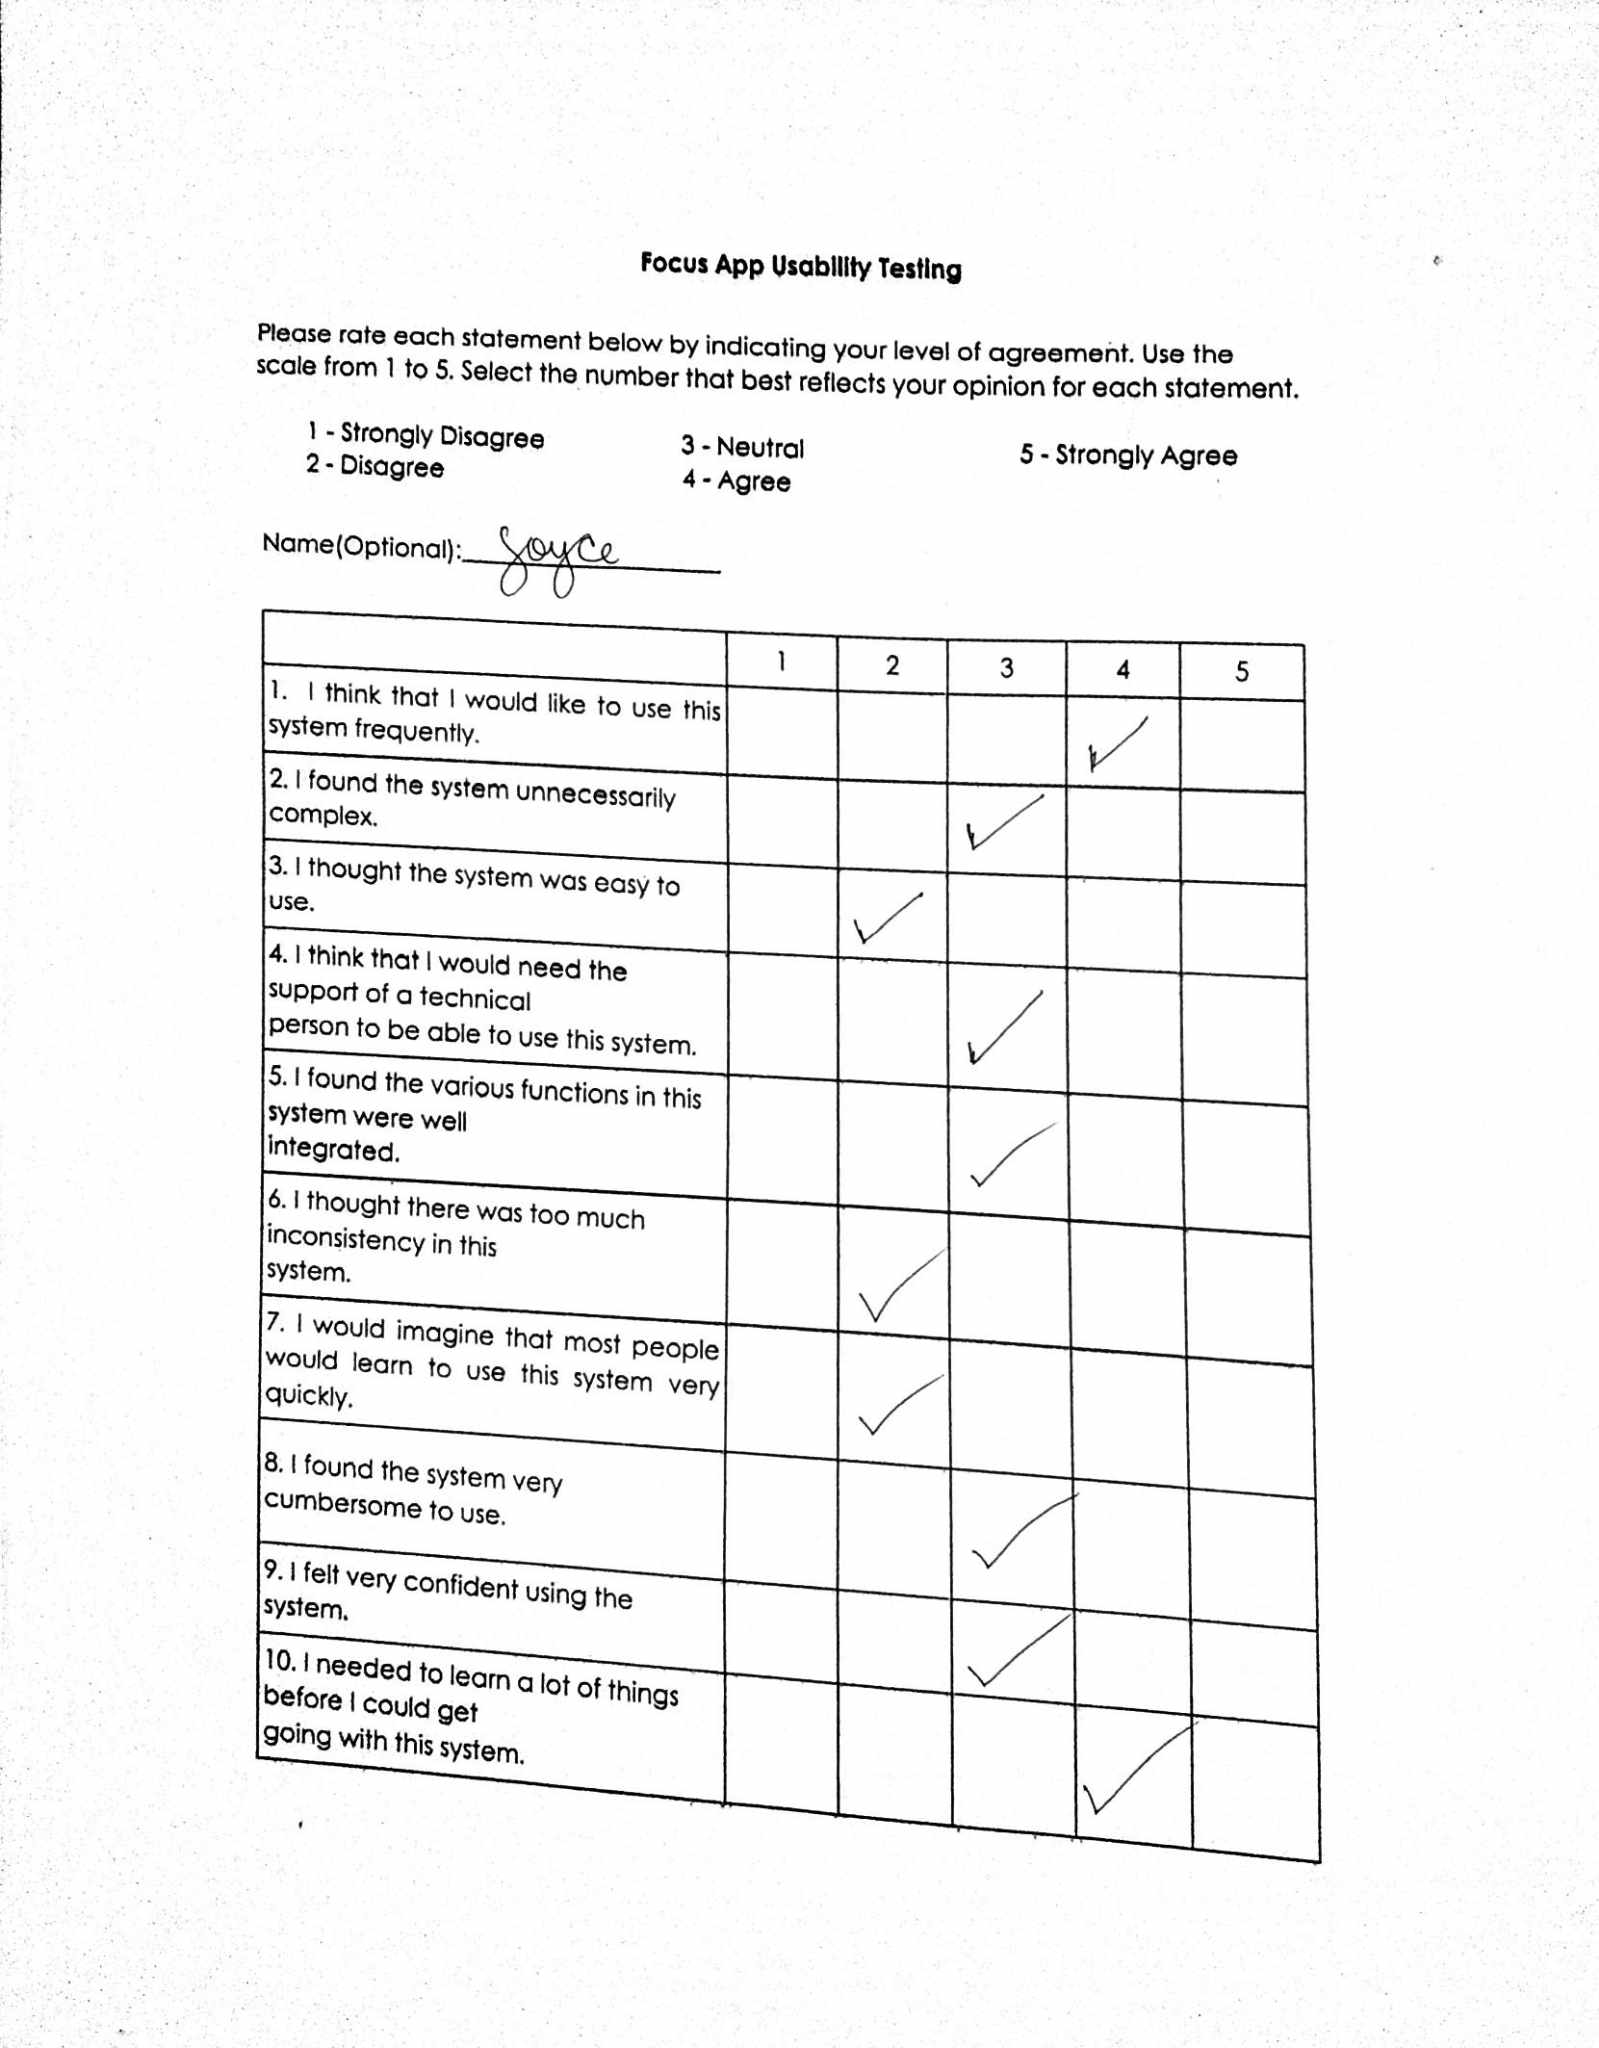 Focus App Usability Testing
Please rate each statement below by indicating your level of agreement. Use the
scale from 1 to 5. Select the number that best reflects your opinion for each statement.
1 - Strongly Disagree 3 - Neutral 5 - Strongly Agree
2 - Disagree 4 - Agree
Name(Optional): Joyce
1 2 3 4 5
1. I think that I would like to use this
system frequently. ✓
2. I found the system unnecessarily
complex. ✓
3. I thought the system was easy to
use. ✓
4. I think that I would need the
support of a technical
person to be able to use this system. ✓
5. I found the various functions in this
system were well
integrated. ✓
6. I thought there was too much
inconsistency in this
system. ✓
7. I would imagine that most people
would learn to use this system very
quickly. ✓
8. I found the system very
cumbersome to use. ✓
9. I felt very confident using the
system. ✓
10. I needed to learn a lot of things
before I could get
going with this system. ✓